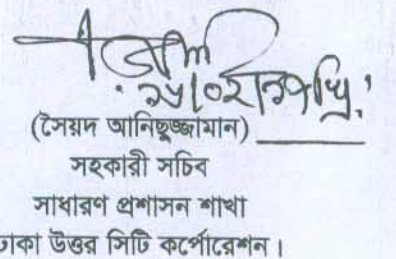 (সৈয়দ আনিছুজ্জামান)
সহকারী সচিব
সাধারণ প্রশাসন শাখা
ঢাকা উত্তর সিটি কর্পোরেশন।